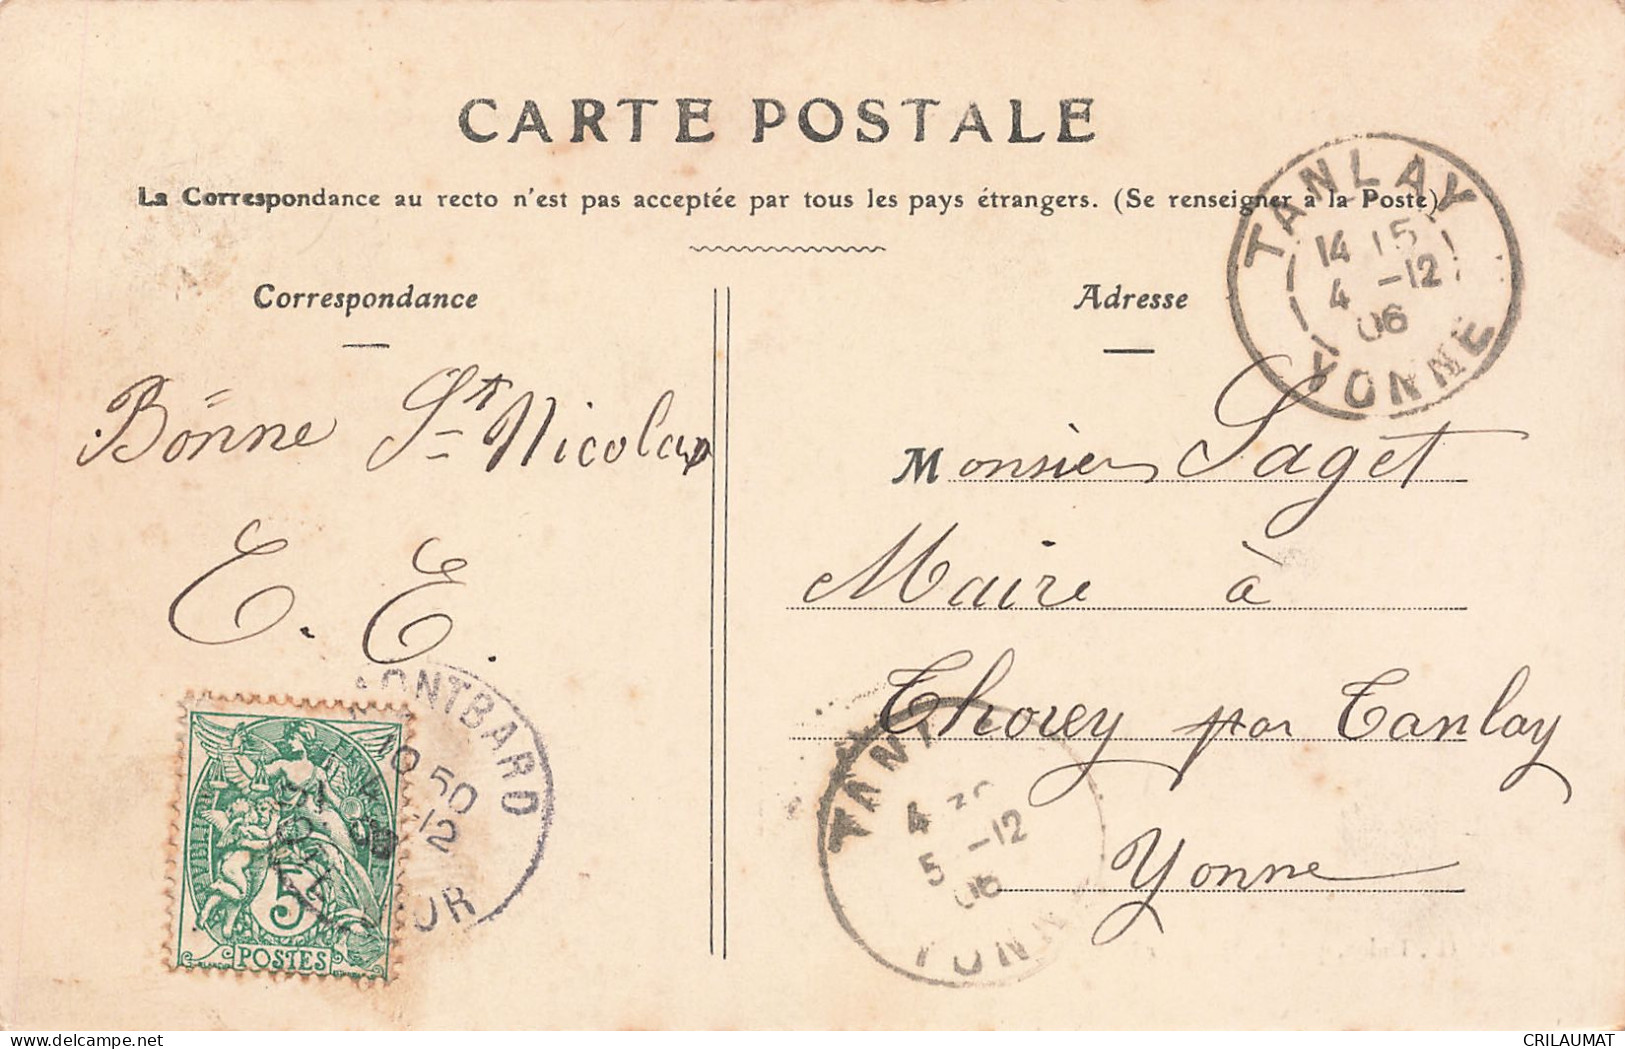 CARTE POSTALE
La Correspondance au recto n'est pas acceptée par tous les pays étrangers. (Se renseigner à la Poste)
Correspondance
Bonne St Nicolas
E. E.
Adresse
Monsieur Saget
Maire à
Thorey par Tanlay
Yonne
TANLAY
14 15
4 -12
06
YONNE
MONTBARD
10 50
-12
OR
5
POSTES
TANL
4 
5 -12
06
YONN
delcampe.net
CRILAUMAT